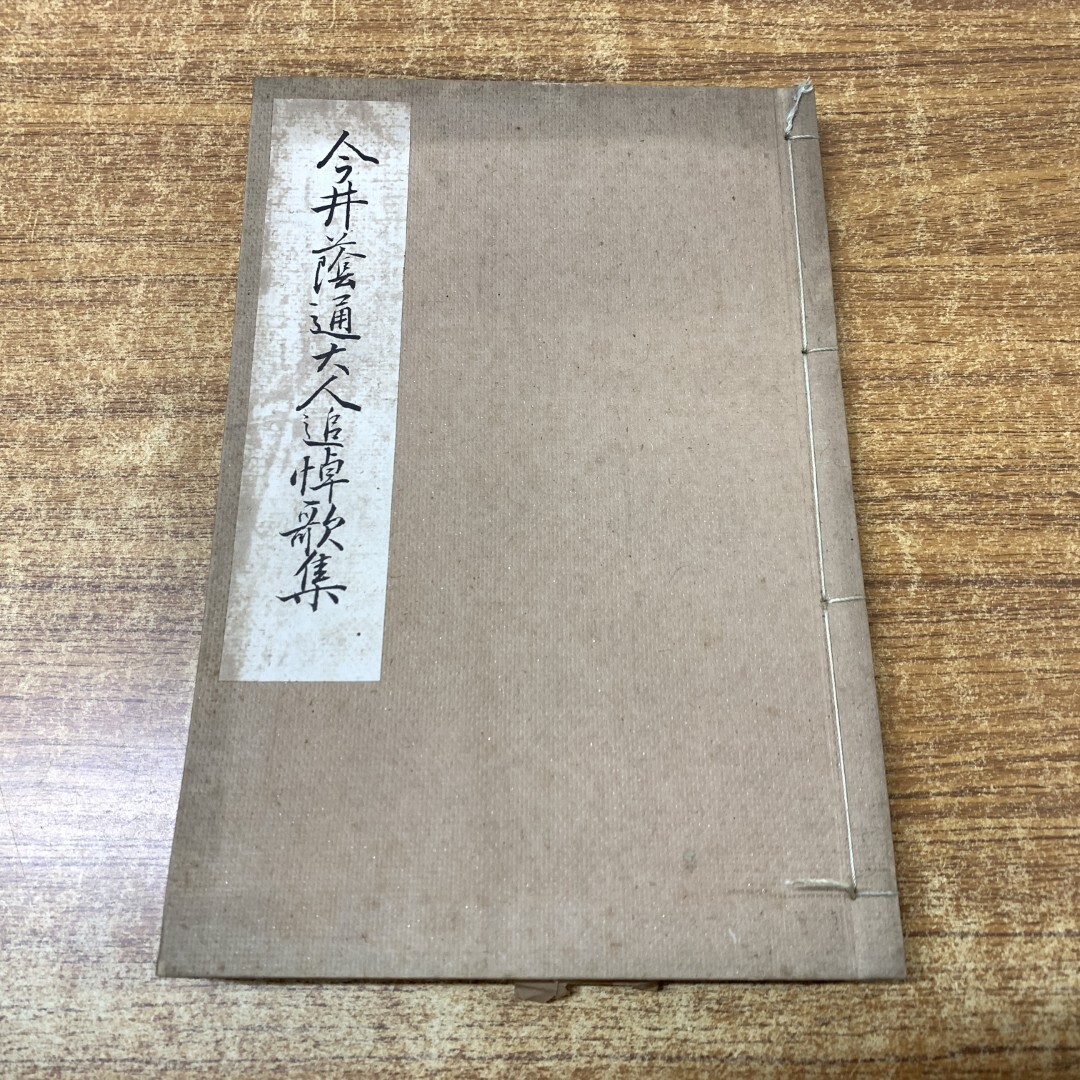 今井蔭通大人追悼歌集